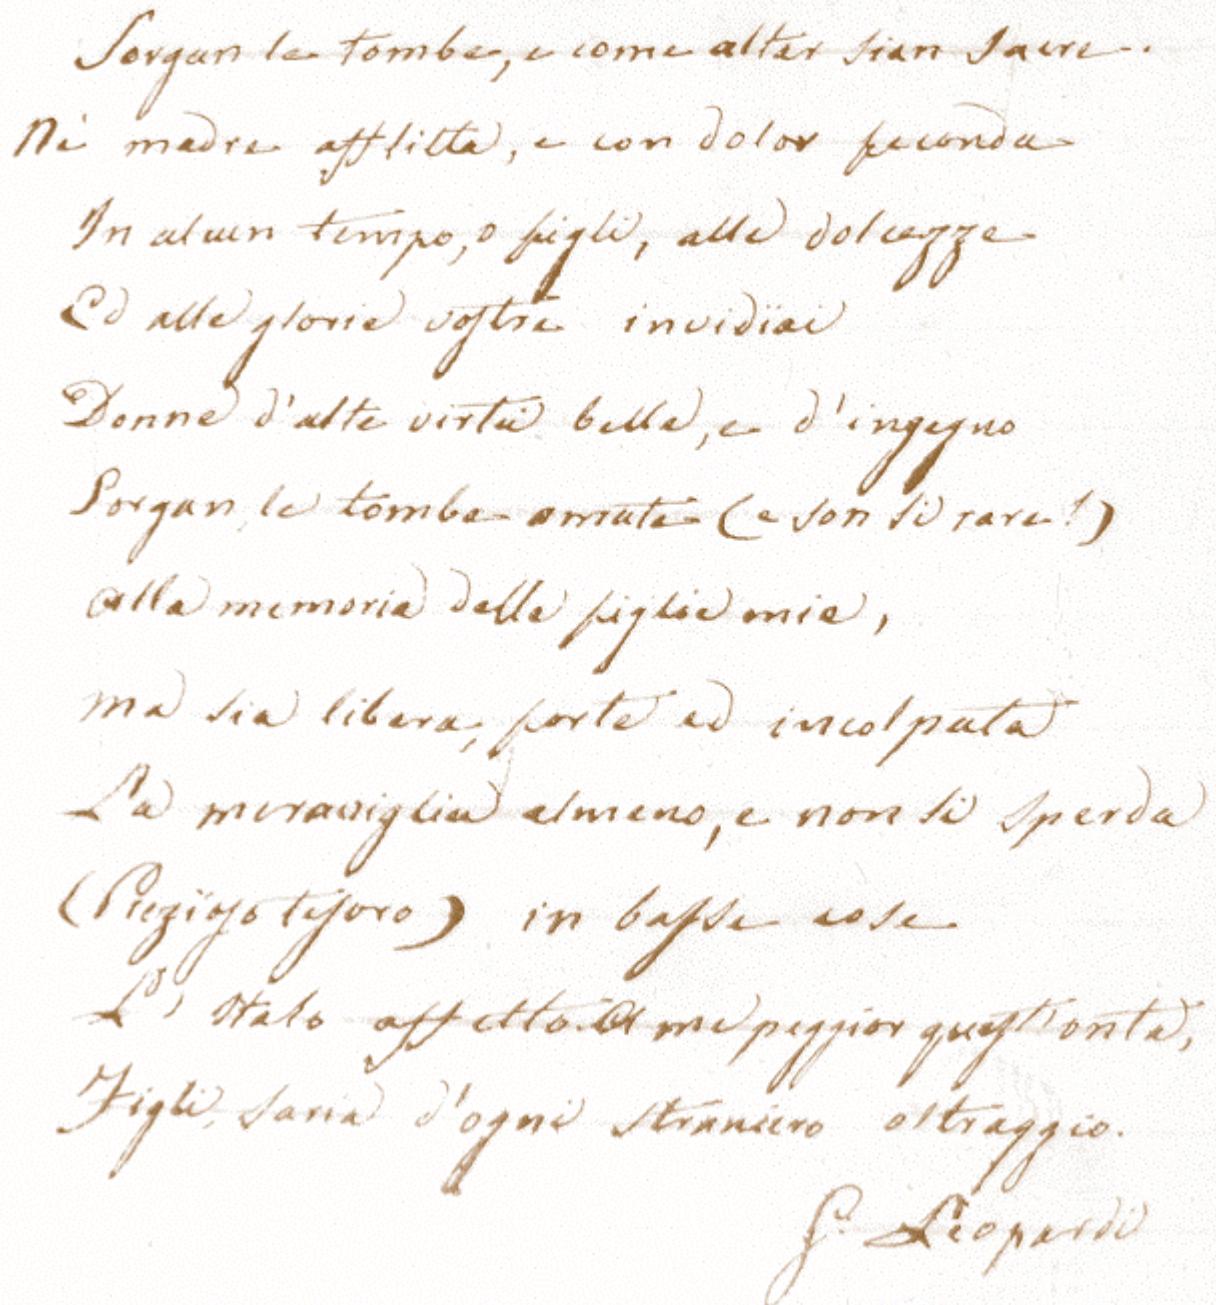 Sorgan le tombe, e come altar sian sacre.
Nè madre afflitta, e con dolor feconda
In alcun tempo, o figli, alle dolcezze
Ed alle glorie vostre invidïai
Donne d'alte virtù belle, e d'ingegno
Sorgan le tombe ornate (e son sì rare!)
alla memoria delle figlie mie,
ma sia libera, forte ed incolpata
La meraviglia almeno, e non si sperda
(Prezïoso tesoro) in basse cose
L'Italo affetto. A me peggior quest'onta,
Figli, saria d'ogni straniero oltraggio.
G. Leopardi